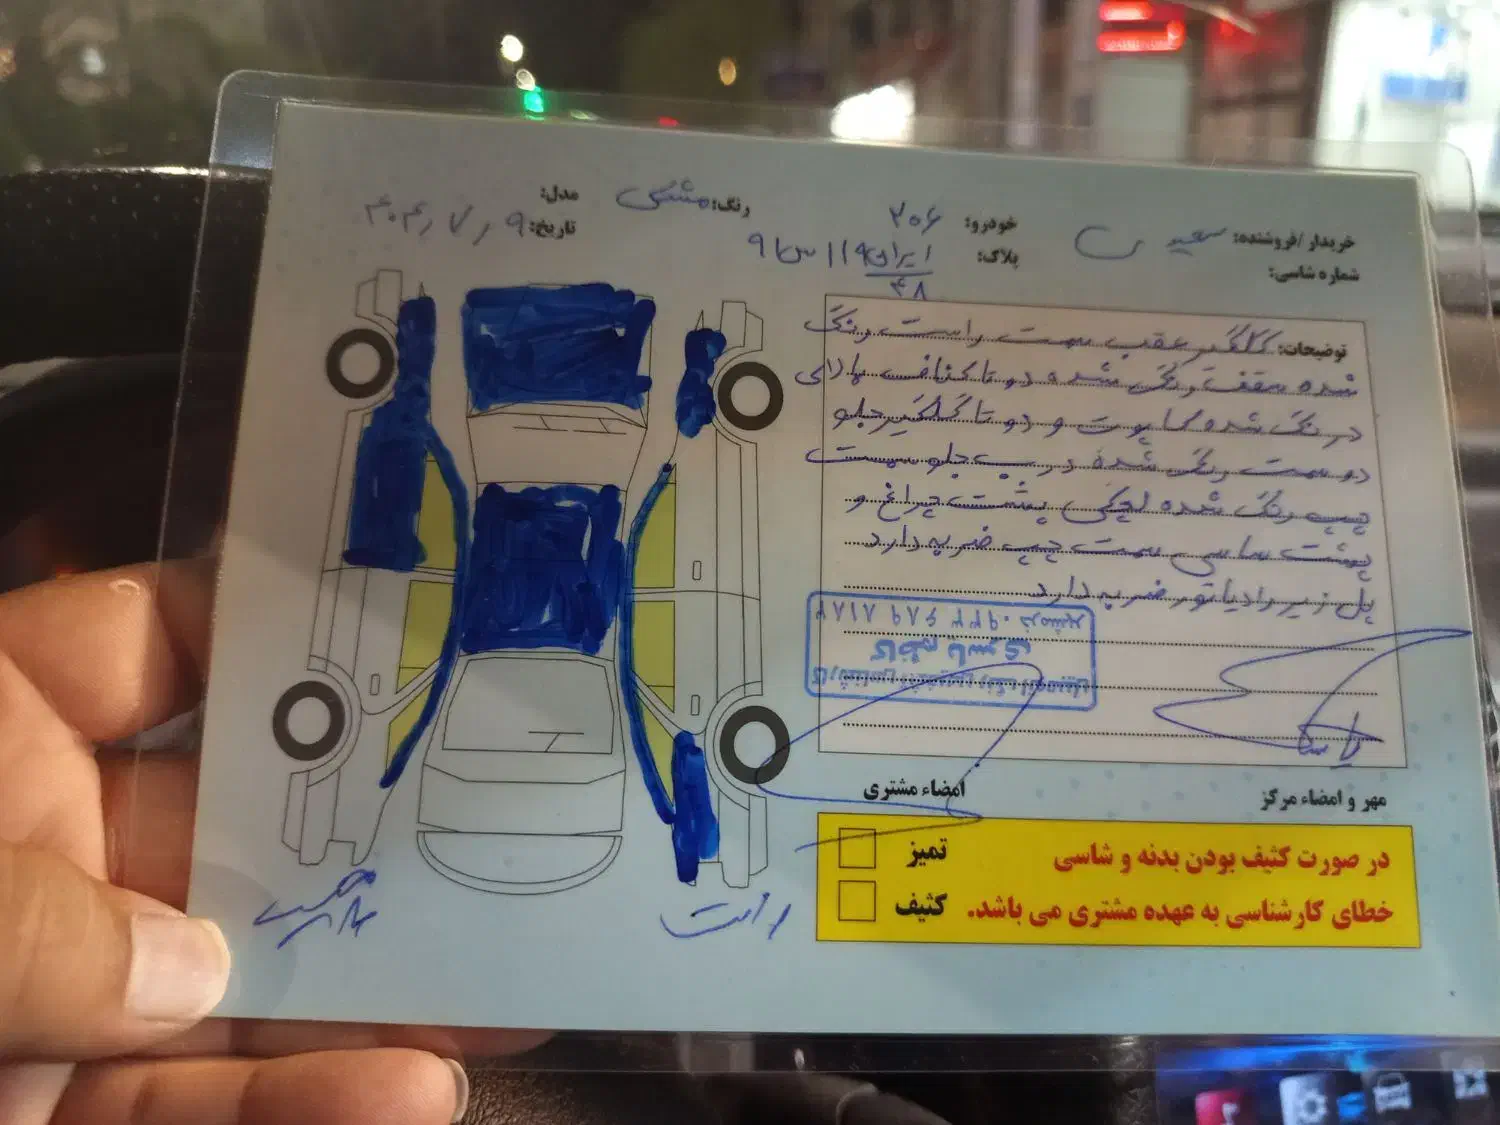 خریدار /فروشنده: سعیدی
خودرو: ۲۰۶
رنگ: مشکی
مدل:
شماره شاسی:
پلاک: ایران ۴۸
تاریخ: ۴۰۴٫۷٫۹
توضیحات: گلگیر عقب سمت راست رنگ
شده سقف رنگ شده دو تا کتاف بالای
در رنگ شده کاپوت و دو تا گلگیر جلو
دو سمت رنگ شده درب جلو سمت
چپ رنگ شده لچکی پشت چراغ و
پشت ساسی سمت چپ ضربه دارد
پل زیر رادیاتور ضربه دارد
کارشناس تشخیص رنگ اتومبیل
کاظم یاسری
خرمشهر ۰۹۳۳ ۶۸۹ ۸۱۸۲
مهر و امضاء مرکز
امضاء مشتری
در صورت کثیف بودن بدنه و شاسی
خطای کارشناسی به عهده مشتری می باشد.
تمیز
کثیف
راست